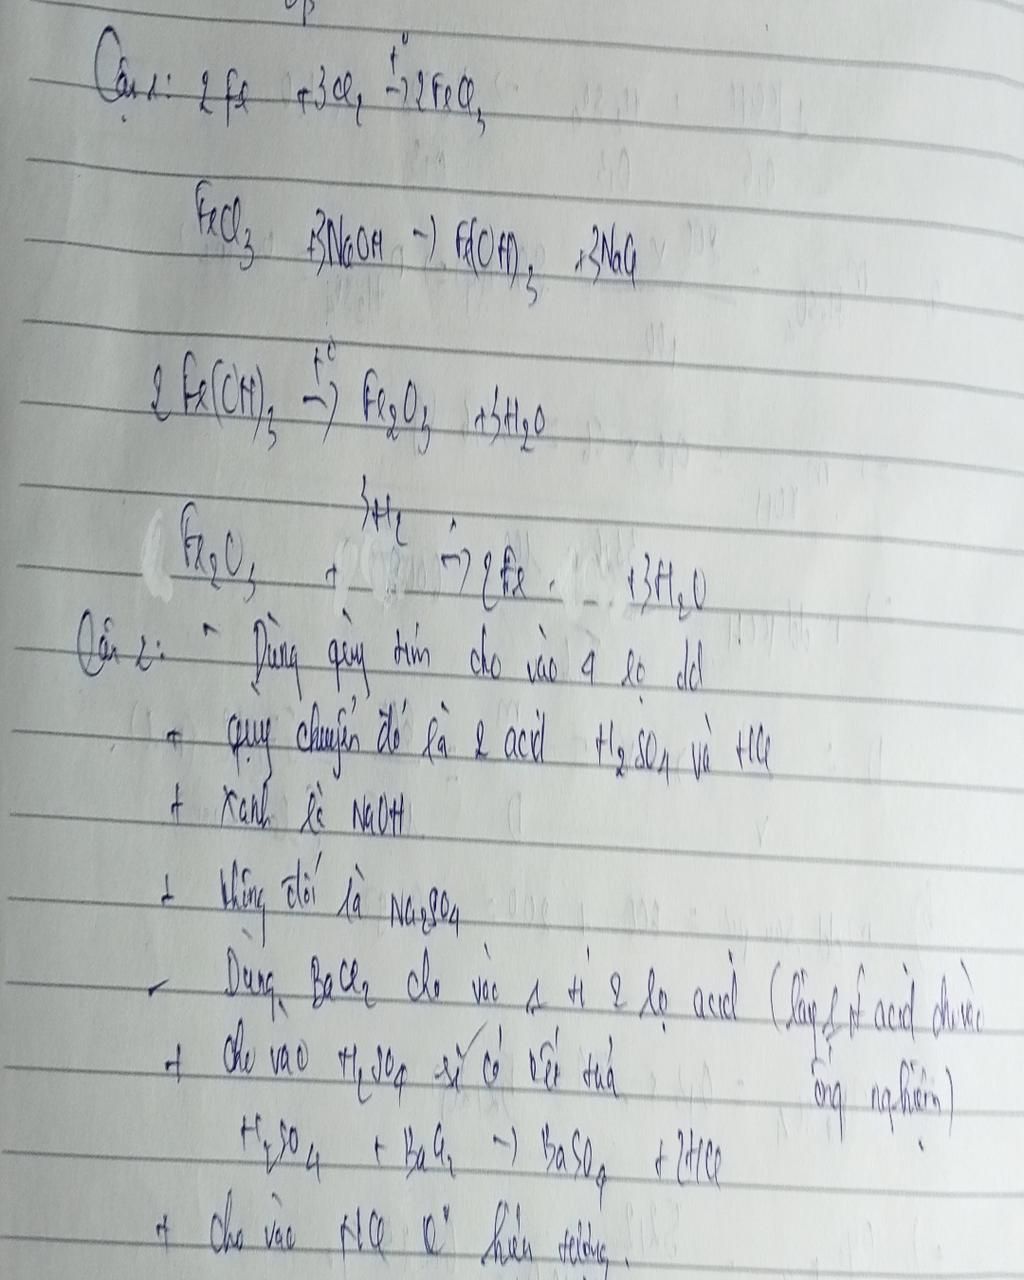 Câu 1: 2Fe +3Cl₂ t⁰→ 2FeCl₃
FeCl₃ +3NaOH → Fe(OH)₃ +3NaCl
2Fe(OH)₃ t⁰→ Fe₂O₃ +3H₂O
Fe₂O₃ + 3H₂ → 2Fe +3H₂O
Câu 2: - Dùng quỳ tím cho vào 4 lọ dd
+ quỳ chuyển đỏ là 2 acid H₂SO₄ và HCl
+ xanh là NaOH
+ không đổi là Na₂SO₄
- Dùng BaCl₂ cho vào 1 ít 2 lọ acid (lấy 1 ít acid cho vào
ống nghiệm)
+ cho vào H₂SO₄ sẽ có kết tủa
H₂SO₄ + BaCl₂ → BaSO₄ + 2HCl
+ cho vào HCl hiện tượng.